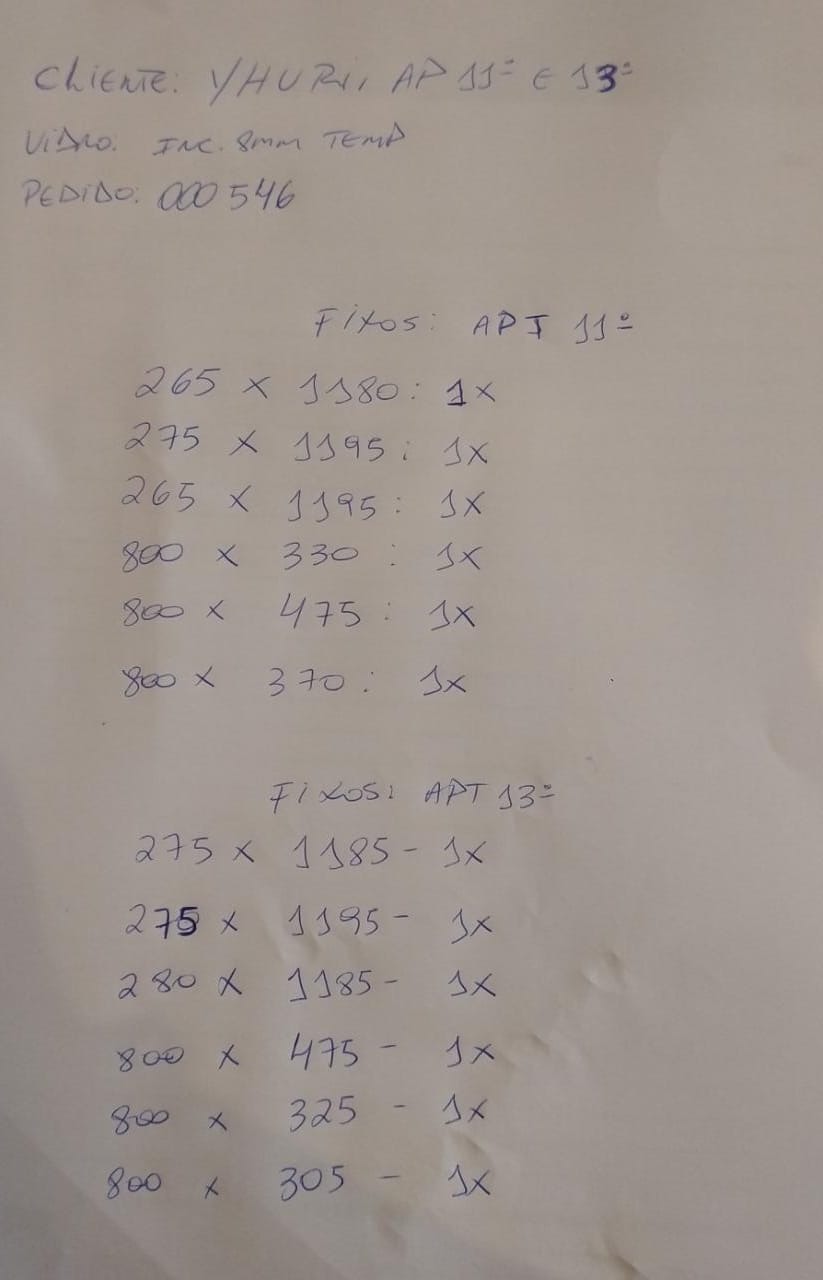 Cliente: YHURi, AP 11º E 13º
Vidro: INC. 8mm TEMP
PEDIDO: 000546
Fixos: APT 11º
265 x 1180: 1x
275 x 1195: 1x
265 x 1195: 1x
800 x 330 : 1x
800 x 475: 1x
800 x 370: 1x
Fixos: APT 13º
275 x 1185 - 1x
275 x 1195 - 1x
280 x 1185 - 1x
800 x 475 - 1x
800 x 325 - 1x
800 x 305 - 1x